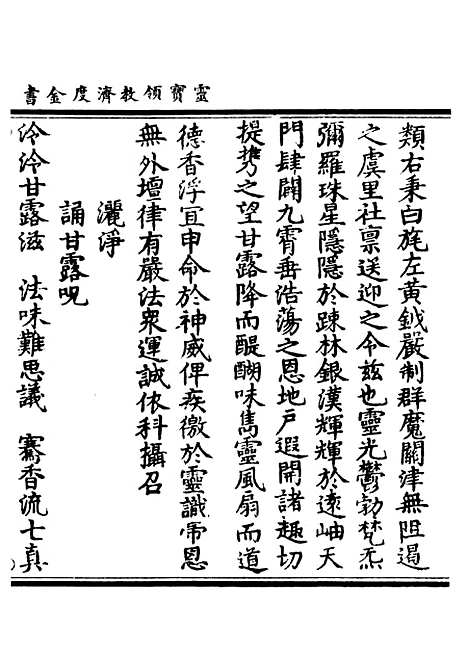 靈寶領教濟度金書
類右秉白旄左黃鉞嚴制群魔關津無阻遏
之虞里社禀送迎之令兹也靈光鬱勃梵炁
彌羅珠星隱隱於踈林銀漢輝輝於遠岫天
門肆闢九霄垂浩蕩之恩地戶遐開諸趣切
提携之望甘露降而醍醐味雋靈風扇而道
德香浮冝申命於神威俾疾徹於靈識帝恩
無外壇律有嚴法衆運誠依科攝召
灑淨
誦甘露呪
泠泠甘露滋　法味難思議　騫香流七真